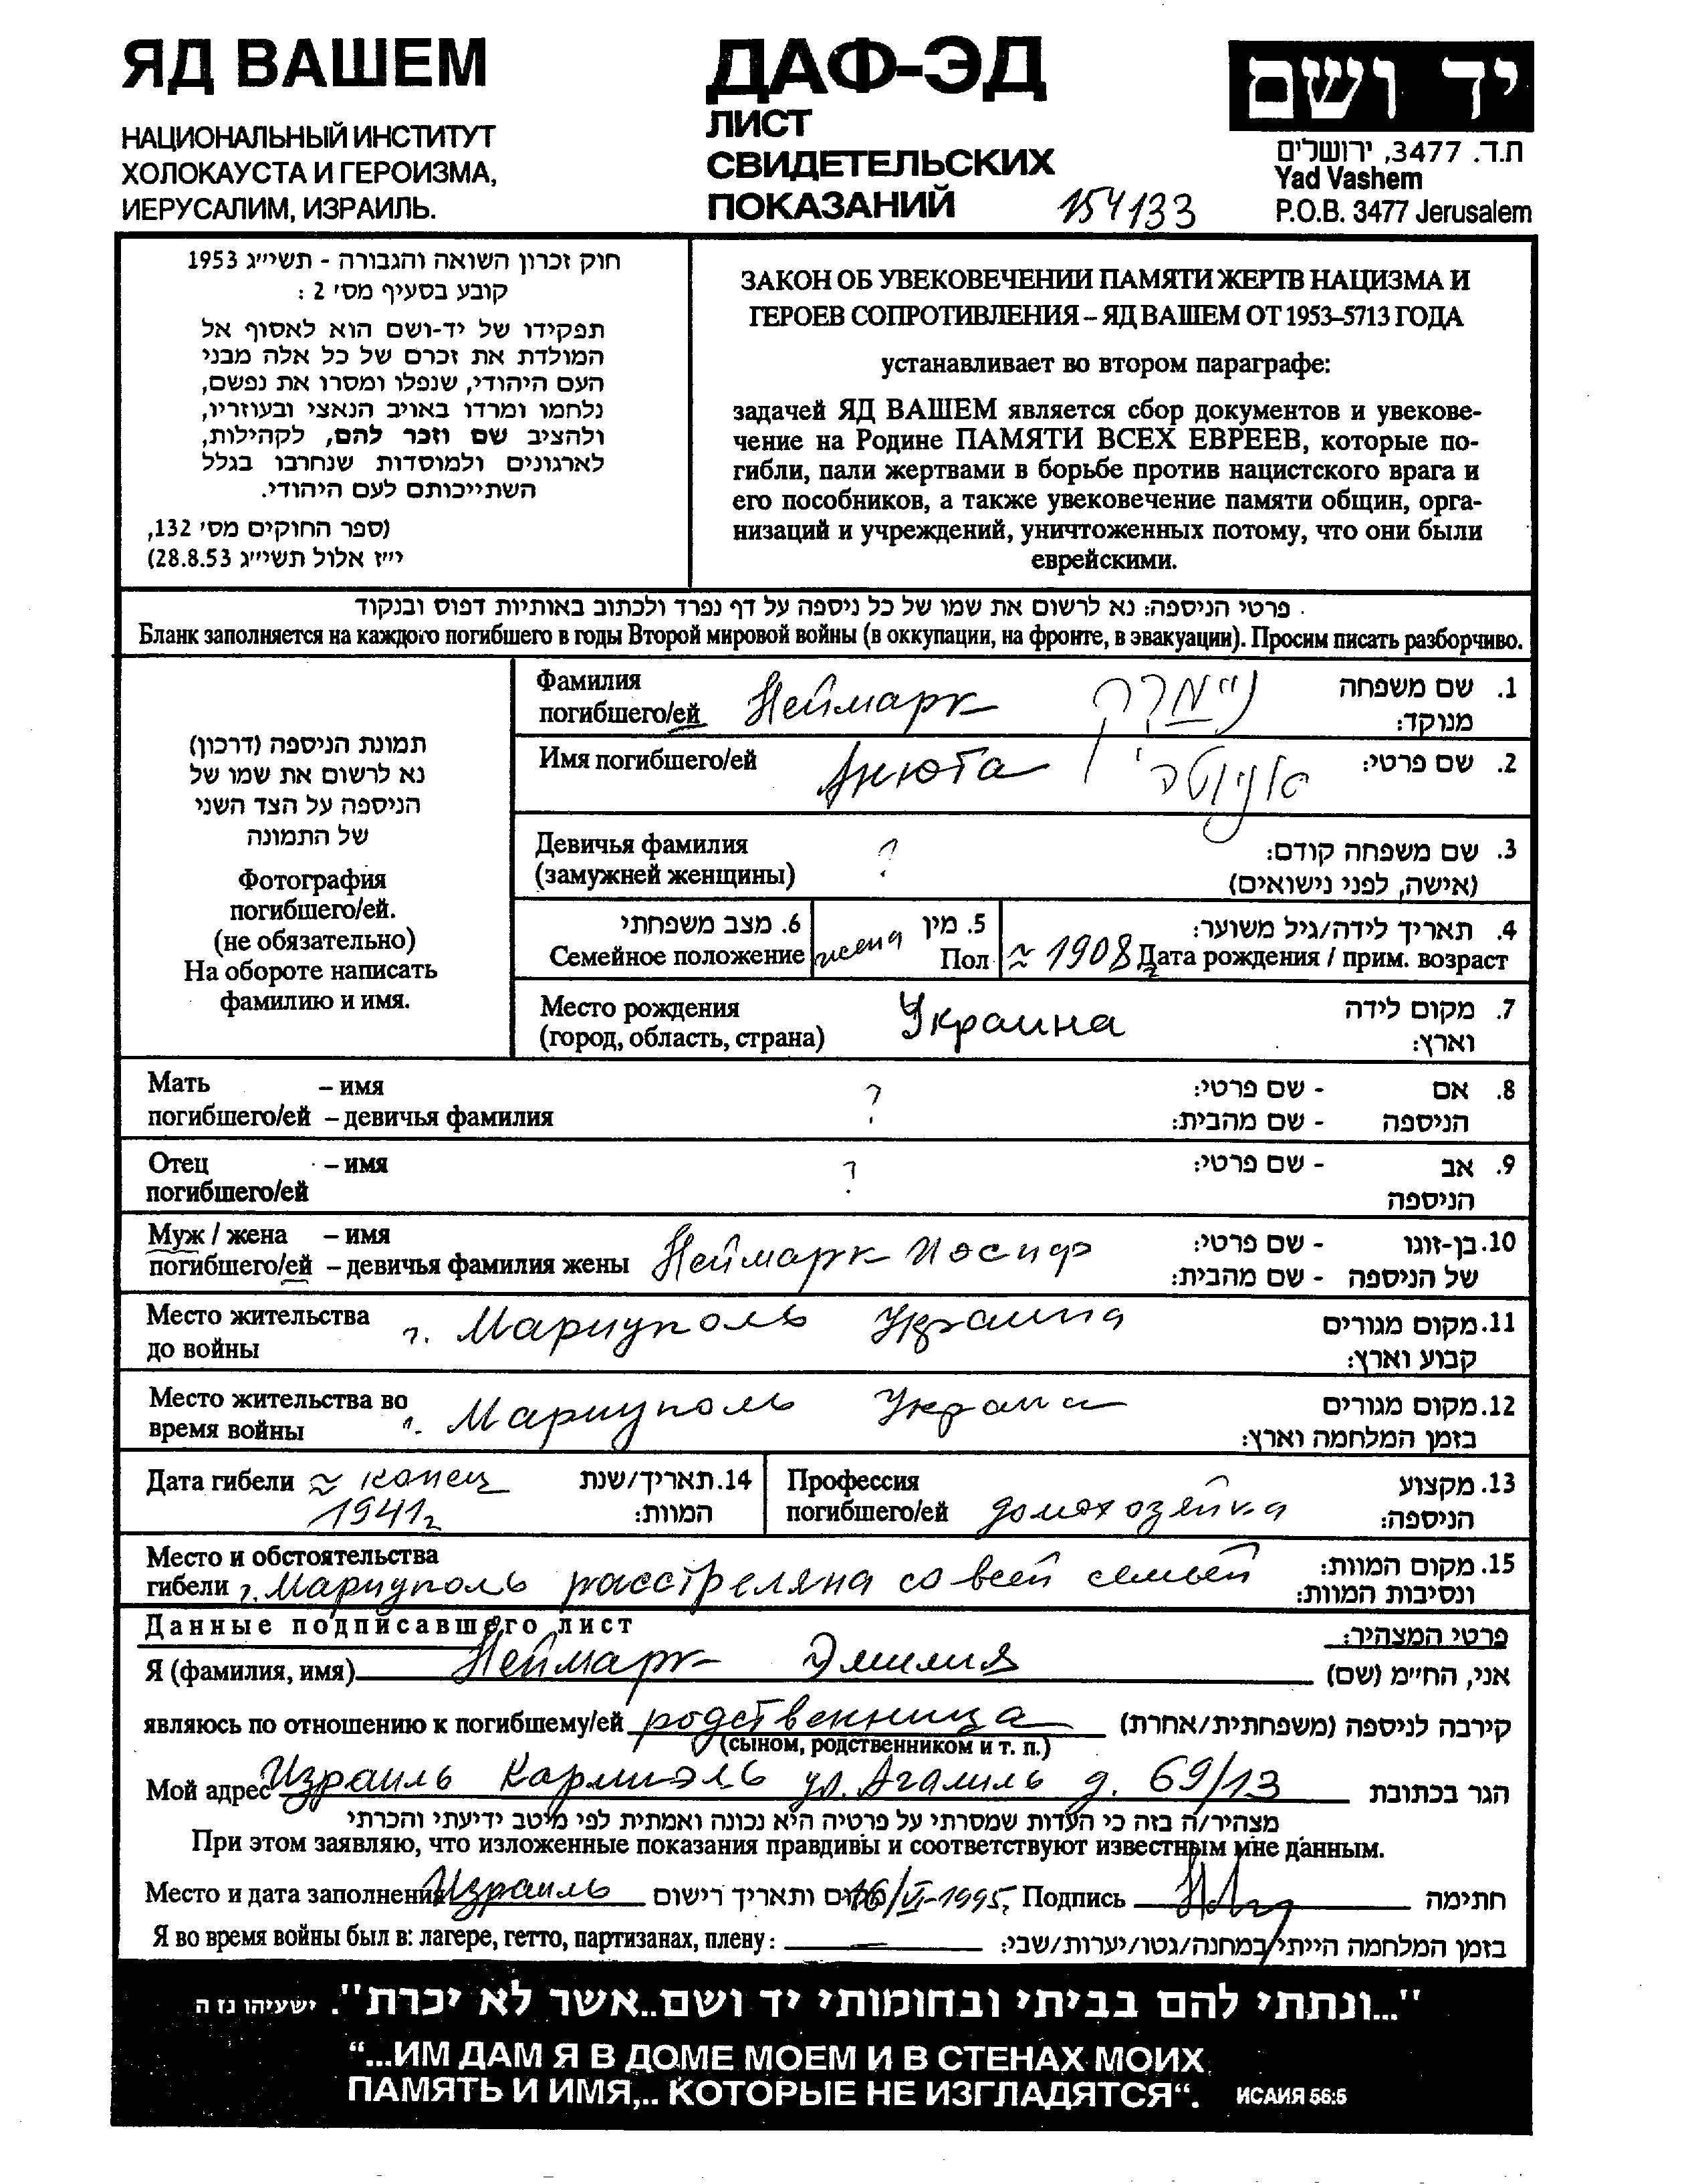 ЯД ВАШЕМ
НАЦИОНАЛЬНЫЙ ИНСТИТУТ
ХОЛОКАУСТА И ГЕРОИЗМА,
ИЕРУСАЛИМ, ИЗРАИЛЬ.
ДАФ-ЭД
ЛИСТ
СВИДЕТЕЛЬСКИХ
ПОКАЗАНИЙ 154133
יד ושם
ת.ד. 3477, ירושלים
Yad Vashem
P.O.B. 3477 Jerusalem
חוק זכרון השואה והגבורה - תשי״ג 1953
קובע בסעיף מס׳ 2 :
תפקידו של יד-ושם הוא לאסוף אל
המולדת את זכרם של כל אלה מבני
העם היהודי, שנפלו ומסרו את נפשם,
נלחמו ומרדו באויב הנאצי ובעוזריו,
ולהציב שם וזכר להם, לקהילות,
לארגונים ולמוסדות שנחרבו בגלל
השתייכותם לעם היהודי.
(ספר החוקים מס׳ 132,
י״ז אלול תשי״ג 28.8.53)
ЗАКОН ОБ УВЕКОВЕЧЕНИИ ПАМЯТИ ЖЕРТВ НАЦИЗМА И
ГЕРОЕВ СОПРОТИВЛЕНИЯ – ЯД ВАШЕМ ОТ 1953–5713 ГОДА
устанавливает во втором параграфе:
задачей ЯД ВАШЕМ является сбор документов и увекове-
чение на Родине ПАМЯТИ ВСЕХ ЕВРЕЕВ, которые по-
гибли, пали жертвами в борьбе против нацистского врага и
его пособников, а также увековечение памяти общин, орга-
низаций и учреждений, уничтоженных потому, что они были
еврейскими.
פרטי הניספה: נא לרשום את שמו של כל ניספה על דף נפרד ולכתוב באותיות דפוס ובנקוד
Бланк заполняется на каждого погибшего в годы Второй мировой войны (в оккупации, на фронте, в эвакуации). Просим писать разборчиво.
תמונת הניספה (דרכון)
נא לרשום את שמו של
הניספה על הצד השני
של התמונה
Фотография
погибшего/ей.
(не обязательно)
На обороте написать
фамилию и имя.
Фамилия
погибшего/ей Неймарк ניימרק
1. שם משפחה
מנוקד:
Имя погибшего/ей Анюта אניוטה 2. שם פרטי:
Девичья фамилия ? 3. שם משפחה קודם:
(замужней женщины) (אישה, לפני נישואים)
6. מצב משפחתי 5. מין 4. תאריך לידה/גיל משוער:
Семейное положение жена Пол ≈ 1908г Дата рождения / прим. возраст
Место рождения Украина 7. מקום לידה
(город, область, страна) וארץ:
Мать – имя ? 8. אם - שם פרטי:
погибшего/ей – девичья фамилия הניספה - שם מהבית:
Отец – имя ? 9. אב - שם פרטי:
погибшего/ей הניספה
Муж / жена – имя 10. בן-זוגו - שם פרטי:
погибшего/ей – девичья фамилия жены Неймарк Иосиф של הניספה - שם מהבית:
Место жительства г. Мариуполь Украина 11. מקום מגורים
до войны קבוע וארץ:
Место жительства во г. Мариуполь Украина 12. מקום מגורים
время войны בזמן המלחמה וארץ:
Дата гибели ≈ конец 14. תאריך/שנת
1941г המוות:
Профессия 13. מקצוע
погибшего/ей домохозяйка הניספה:
Место и обстоятельства 15. מקום המוות:
гибели г. Мариуполь расстреляна со всей семьей ונסיבות המוות:
Данные подписавшего лист פרטי המצהיר:
Я (фамилия, имя) Неймарк Эмилия אני, הח״מ (שם)
являюсь по отношению к погибшему/ей родственница קירבה לניספה (משפחתית/אחרת)
(сыном, родственником и т. п.)
Мой адрес Израиль Кармиэль ул. Агамиль д. 69/13 הגר בכתובת
מצהיר/ה בזה כי העדות שמסרתי על פרטיה היא נכונה ואמתית לפי מיטב ידיעתי והכרתי
При этом заявляю, что изложенные показания правдивы и соответствуют известным мне данным.
Место и дата заполнения Израиль מקום ותאריך רישום 16/VI-1995 Подпись חתימה
Я во время войны был в: лагере, гетто, партизанах, плену: — בזמן המלחמה הייתי במחנה/גטו/יערות/שבי:
"...ונתתי להם בביתי ובחומותי יד ושם..אשר לא יכרת". ישעיהו נו ה
“...ИМ ДАМ Я В ДОМЕ МОЕМ И В СТЕНАХ МОИХ
ПАМЯТЬ И ИМЯ,.. КОТОРЫЕ НЕ ИЗГЛАДЯТСЯ“. ИСАИЯ 56:5